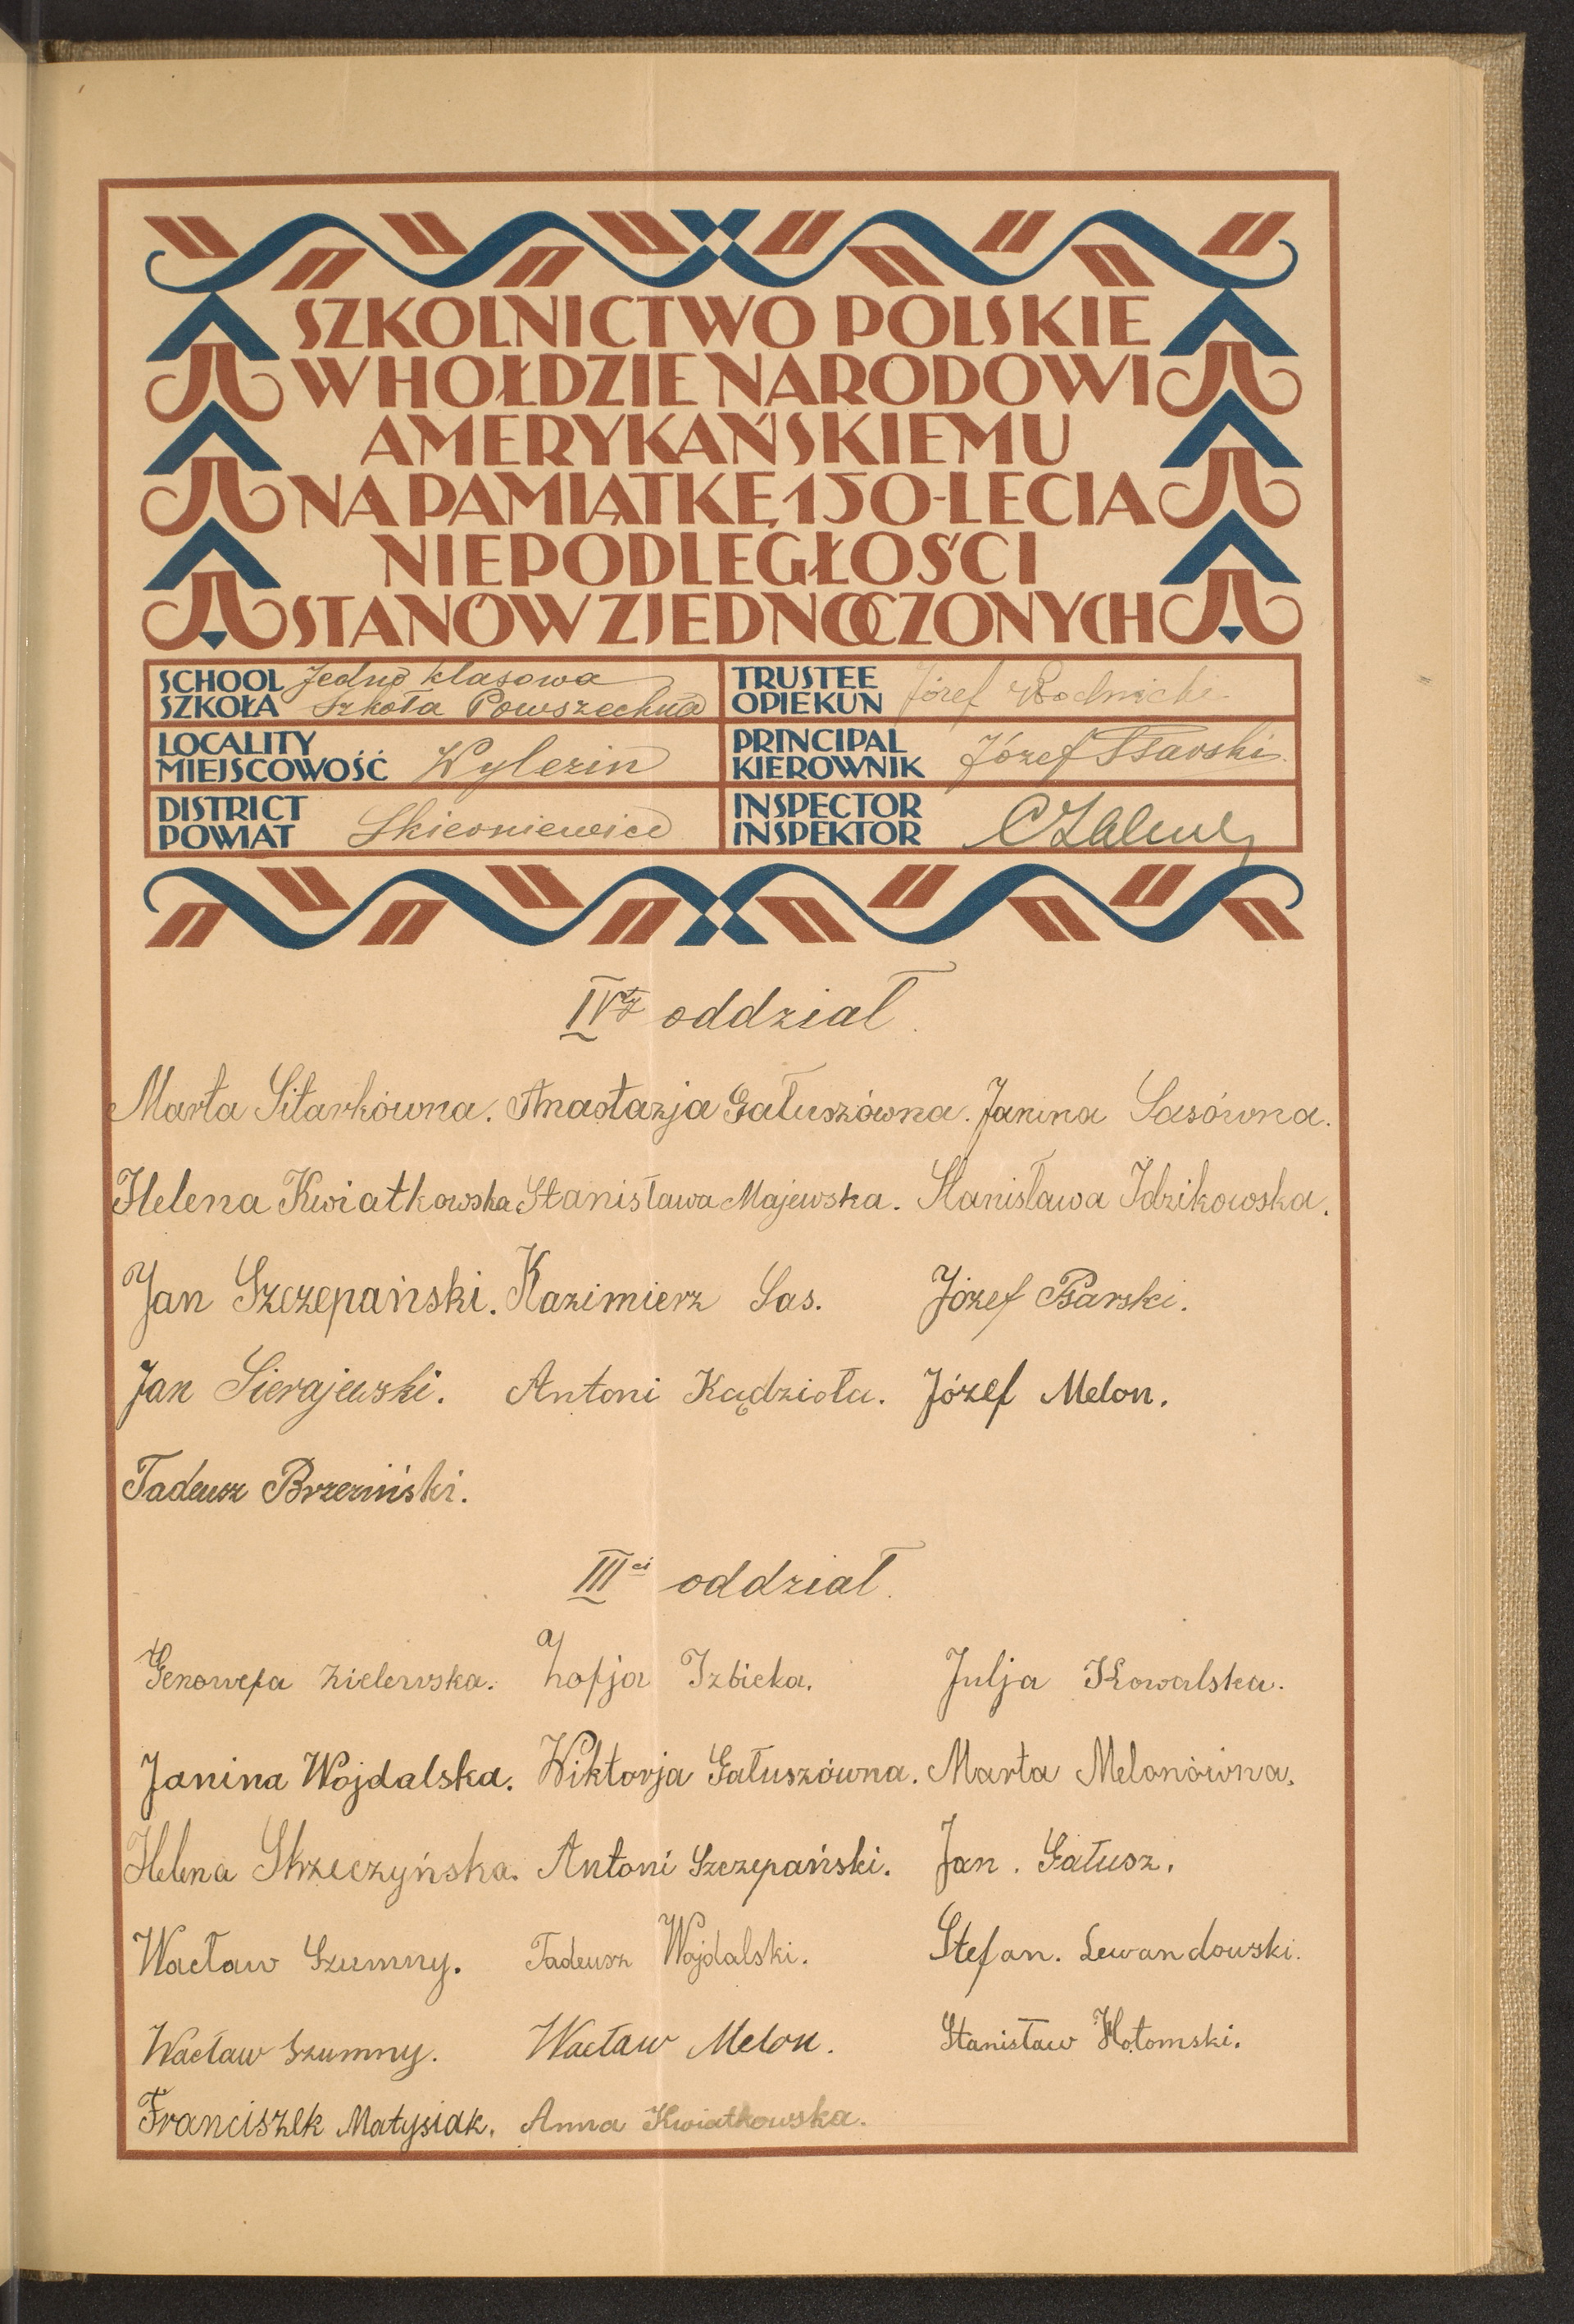 SZKOLNICTWO POLSKIE
W HOŁDZIE NARODOWI
AMERYKAŃSKIEMU
NA PAMIĄTKĘ 150-LECIA
NIEPODLEGŁOŚCI
STANÓW ZJEDNOCZONYCH
SCHOOL SZKOŁA Jedno klasowa Szkoła Powszechna
TRUSTEE OPIEKUN Józef
LOCALITY MIEJSCOWOŚĆ Wylezin
PRINCIPAL KIEROWNIK Józef Psarski
DISTRICT POWIAT Skierniewice
INSPECTOR INSPEKTOR
IVty oddział
Marta Sitarkówna. Anastazja Gałuszówna. Janina Sasówna.
Helena Kwiatkowska Stanisława Majewska. Stanisława Idzikowska.
Jan Szczepański. Kazimierz Sas. Józef Psarski.
Jan Sierajewski. Antoni Kądzioła. Józef Melon.
Tadeusz Brzeziński.
IIIci oddział
Genowefa Zielewska. Zofja Izbicka. Julja Kowalska.
Janina Wojdalska. Wiktorja Gałuszówna. Marta Melonówna.
Helena Skrzeczyńska. Antoni Szczepański. Jan. Gałusz.
Wacław Szumny. Tadeusz Wojdalski. Stefan. Lewandowski.
Wacław Szumny. Wacław Melon. Stanisław Hołomski.
Franciszek Matysiak. Anna Kwiatkowska.